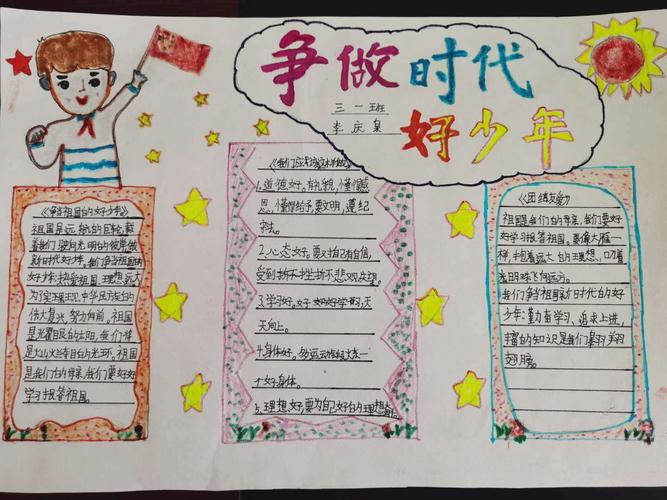 争做时代
好少年
三一班
李庆皇
《争当祖国的好少年》
祖国是远航的巨轮,载
着我们驶向光明的彼岸做
新时代好少年。我们争当祖国的
好少年:热爱祖国,理想远大
为了实现中华民族的
伟大复兴,努力向前。祖国
是光耀眼的太阳,我们
是火山火
是我们的母亲,我们要好好
学习报答祖国。
《我们应
1.道德好,有礼貌,懂得感
恩,懂得给予,要文明,遵纪
守法。
2.心态好,要对自己有自信,
受到折不挫折不悲观失望。
3.学习好。好好学习,天
天向上。
4.身体好。多运动
个好身体。
5.理想好,要为自己好的理想
《团结友爱》
祖国是我们的母亲,我们要好
好学习报答祖国。要像大雁一
样,抱着远大的理想、
光明珠飞向远方。
我们争当祖国新时代的好
少年:勤奋学习、追求上进,
丰富的知识是我们要羽翔
翅膀。